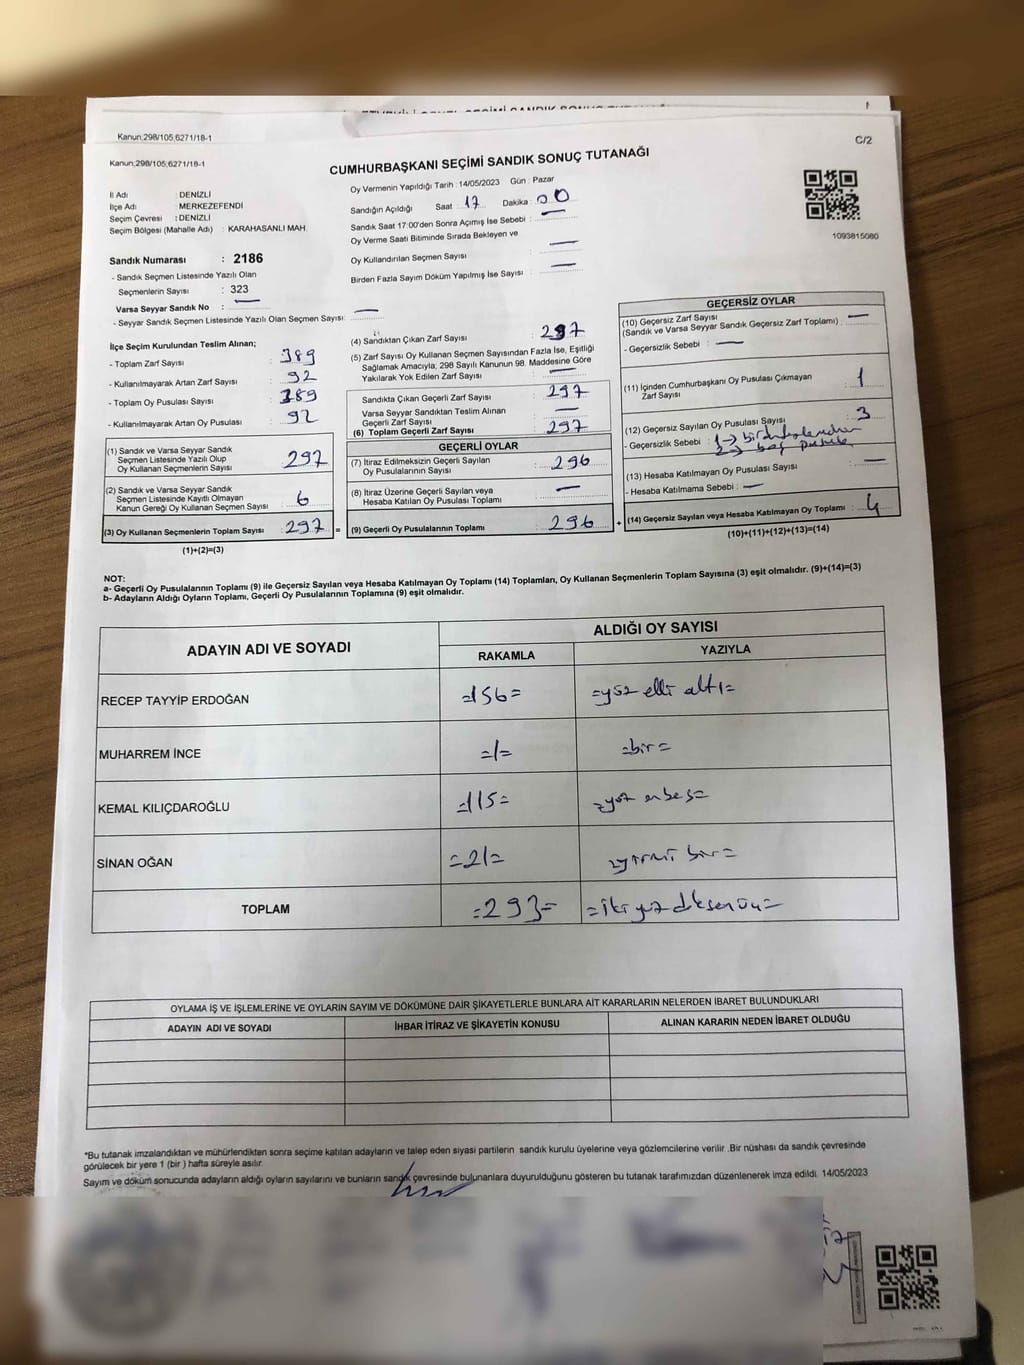 Kanun;298/105,6271/18-1
C/2
Kanun;298/105,6271/18-1
CUMHURBAŞKANI SEÇİMİ SANDIK SONUÇ TUTANAĞI
İl Adı : DENİZLİ
İlçe Adı : MERKEZEFENDİ
Seçim Çevresi : DENİZLİ
Seçim Bölgesi (Mahalle Adı) : KARAHASANLI MAH.
Sandık Numarası : 2186
- Sandık Seçmen Listesinde Yazılı Olan
Seçmenlerin Sayısı : 323
Varsa Seyyar Sandık No : —
- Seyyar Sandık Seçmen Listesinde Yazılı Olan Seçmen Sayısı: —
Oy Vermenin Yapıldığı Tarih : 14/05/2023 Gün : Pazar
Sandığın Açıldığı Saat : 17 Dakika : 00
Sandık Saat 17:00'den Sonra Açımış İse Sebebi : —
Oy Verme Saati Bitiminde Sırada Bekleyen ve
Oy Kullandırılan Seçmen Sayısı : —
Birden Fazla Sayım Döküm Yapılmış İse Sayısı : —
1093815080
İlçe Seçim Kurulundan Teslim Alınan;
- Toplam Zarf Sayısı : 389
- Kullanılmayarak Artan Zarf Sayısı : 92
- Toplam Oy Pusulası Sayısı : 389
- Kullanılmayarak Artan Oy Pusulası : 92
(1) Sandık ve Varsa Seyyar Sandık
Seçmen Listesinde Yazılı Olup
Oy Kullanan Seçmenlerin Sayısı : 297
(2) Sandık ve Varsa Seyyar Sandık
Seçmen Listesinde Kayıtlı Olmayan
Kanun Gereği Oy Kullanan Seçmen Sayısı : 6
(3) Oy Kullanan Seçmenlerin Toplam Sayısı : 297 =
(1)+(2)=(3)
(4) Sandıktan Çıkan Zarf Sayısı : 297
(5) Zarf Sayısı Oy Kullanan Seçmen Sayısından Fazla İse, Eşitliği
Sağlamak Amacıyla; 298 Sayılı Kanunun 98. Maddesine Göre
Yakılarak Yok Edilen Zarf Sayısı : —
Sandıkta Çıkan Geçerli Zarf Sayısı : 297
Varsa Seyyar Sandıktan Teslim Alınan
Geçerli Zarf Sayısı : —
(6) Toplam Geçerli Zarf Sayısı : 297
GEÇERLİ OYLAR
(7) İtiraz Edilmeksizin Geçerli Sayılan
Oy Pusulalarının Sayısı : 296
(8) İtiraz Üzerine Geçerli Sayılan veya
Hesaba Katılan Oy Pusulası Toplamı : —
(9) Geçerli Oy Pusulalarının Toplamı : 296 +
GEÇERSİZ OYLAR
(10) Geçersiz Zarf Sayısı
(Sandık ve Varsa Seyyar Sandık Geçersiz Zarf Toplamı) : —
- Geçersizlik Sebebi : —
(11) İçinden Cumhurbaşkanı Oy Pusulası Çıkmayan
Zarf Sayısı : 1
(12) Geçersiz Sayılan Oy Pusulası Sayısı : 3
- Geçersizlik Sebebi : 1→
2→ boş pusula
(13) Hesaba Katılmayan Oy Pusulası Sayısı : —
- Hesaba Katılmama Sebebi : —
(14) Geçersiz Sayılan veya Hesaba Katılmayan Oy Toplamı : 4
(10)+(11)+(12)+(13)=(14)
NOT:
a- Geçerli Oy Pusulalarının Toplamı (9) ile Geçersiz Sayılan veya Hesaba Katılmayan Oy Toplamı (14) Toplamları, Oy Kullanan Seçmenlerin Toplam Sayısına (3) eşit olmalıdır. (9)+(14)=(3)
b- Adayların Aldığı Oyların Toplamı, Geçerli Oy Pusulalarının Toplamına (9) eşit olmalıdır.
ADAYIN ADI VE SOYADI
ALDIĞI OY SAYISI
RAKAMLA YAZIYLA
RECEP TAYYİP ERDOĞAN =156= =yüz elli altı=
MUHARREM İNCE =1= =bir=
KEMAL KILIÇDAROĞLU =115= =yüz onbeş=
SİNAN OĞAN =21= =yirmi bir=
TOPLAM =293= =iki yüz doksan üç=
OYLAMA İŞ VE İŞLEMLERİNE VE OYLARIN SAYIM VE DÖKÜMÜNE DAİR ŞİKAYETLERLE BUNLARA AİT KARARLARIN NELERDEN İBARET BULUNDUKLARI
ADAYIN ADI VE SOYADI İHBAR İTİRAZ VE ŞİKAYETİN KONUSU ALINAN KARARIN NEDEN İBARET OLDUĞU
*Bu tutanak imzalandıktan ve mühürlendikten sonra seçime katılan adayların ve talep eden siyasi partilerin sandık kurulu üyelerine veya gözlemcilerine verilir .Bir nüshası da sandık çevresinde
görülecek bir yere 1 (bir ) hafta süreyle asılır.
Sayım ve döküm sonucunda adayların aldığı oyların sayılarını ve bunların sandık çevresinde bulunanlara duyurulduğunu gösteren bu tutanak tarafımızdan düzenlenerek imza edildi. 14/05/2023